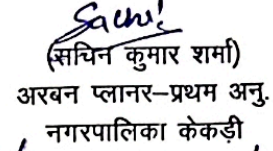 Sachi
(सचिन कुमार शर्मा)
अरबन प्लानर–प्रथम अनु.
नगरपालिका केकड़ी